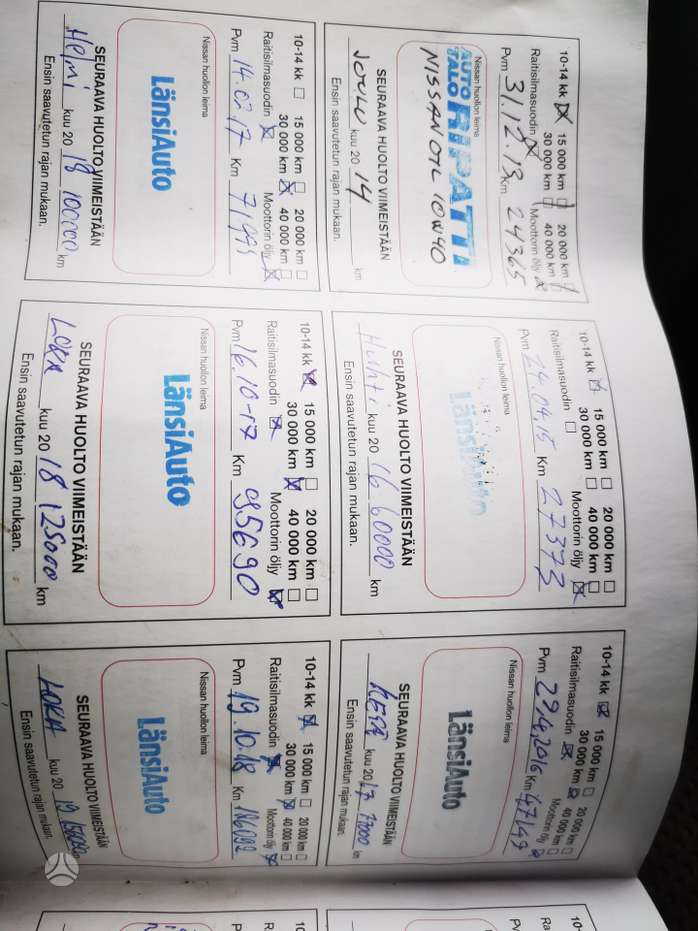 10-14 kk 15 000 km 20 000 km
30 000 km 40 000 km
Raitisilmasuodin Moottorin öljy
Pvm 31.12.13 Km 24365
Nissan huollon leima
AUTO TALO RIPATTI
NISSAN OIL 10W40
SEURAAVA HUOLTO VIIMEISTÄÄN
JOULU kuu 20 14 km
Ensin saavutetun rajan mukaan.
10-14 kk 15 000 km 20 000 km
30 000 km 40 000 km
Raitisilmasuodin Moottorin öljy
Pvm 24.04.15 Km 27373
Nissan huollon leima
LänsiAuto
SEURAAVA HUOLTO VIIMEISTÄÄN
Huhti kuu 20 16 60000 km
Ensin saavutetun rajan mukaan.
10-14 kk 15 000 km 20 000 km
30 000 km 40 000 km
Raitisilmasuodin Moottorin öljy
Pvm 29.4.2016 Km 47147
Nissan huollon leima
LänsiAuto
SEURAAVA HUOLTO VIIMEISTÄÄN
kuu 20 17 77000 km
Ensin saavutetun rajan mukaan.
10-14 kk 15 000 km 20 000 km
30 000 km 40 000 km
Raitisilmasuodin Moottorin öljy
Pvm 14.02.17 Km 71993
Nissan huollon leima
LänsiAuto
SEURAAVA HUOLTO VIIMEISTÄÄN
Helmi kuu 20 18 100000 km
Ensin saavutetun rajan mukaan.
10-14 kk 15 000 km 20 000 km
30 000 km 40 000 km
Raitisilmasuodin Moottorin öljy
Pvm 16.10-17 Km 95690
Nissan huollon leima
LänsiAuto
SEURAAVA HUOLTO VIIMEISTÄÄN
LOKA kuu 20 18 125000 km
Ensin saavutetun rajan mukaan.
10-14 kk 15 000 km 20 000 km
30 000 km 40 000 km
Raitisilmasuodin Moottorin öljy
Pvm 19.10.18 Km
Nissan huollon leima
LänsiAuto
SEURAAVA HUOLTO VIIMEISTÄÄN
LOKA kuu 20 19
Ensin saavutetun rajan mukaan.
10-14
Raitis
Pvm
Nissan
10-
Rai
Pvm
Nissa